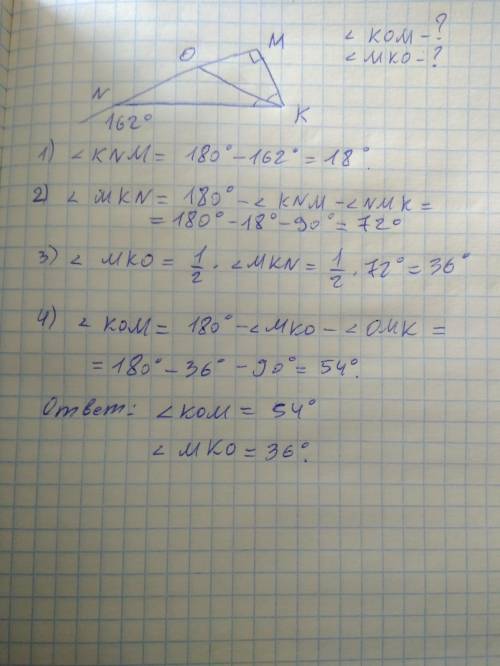 ∠ KOM - ?
∠ MKO - ?
M
O
N
K
162°
1) ∠KNM = 180° - 162° = 18°.
2) ∠ MKN = 180° - ∠ KNM - ∠NMK =
= 180° - 18° - 90° = 72°
3) ∠ MKO = 1/2 · ∠MKN = 1/2 · 72° = 36°
4) ∠ KOM = 180° - ∠MKO - ∠OMK =
= 180° - 36° - 90° = 54°.
Ответ: ∠KOM = 54°
∠ MKO = 36°.